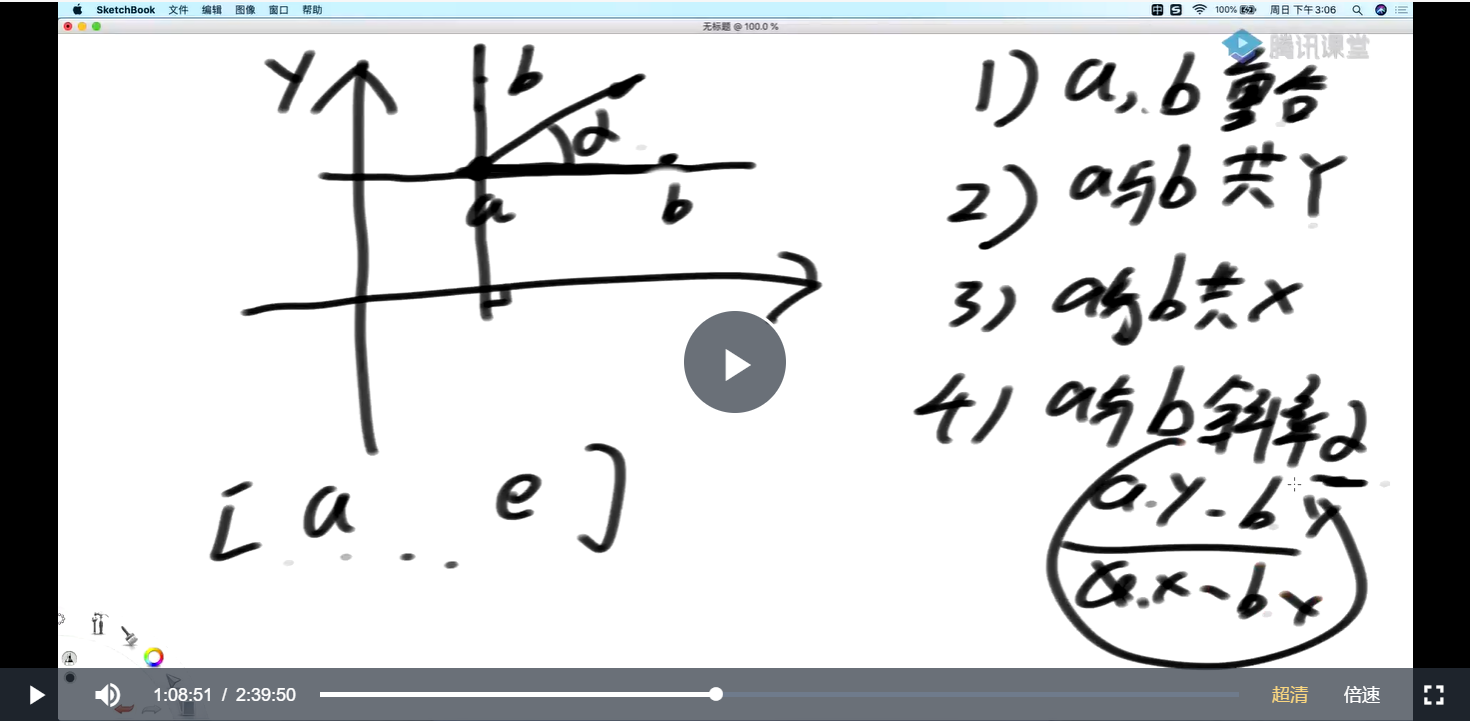 SketchBook 文件 编辑 图像 窗口 帮助 100% 周日 下午3:06
无标题 @ 100.0 %
腾讯课堂
Y
b
α
a b
[ a . . . e ]
1) a, b 重合
2) a与b 共Y
3) a与b共X
4) a与b斜率α
a.y - b y
a.x - b x
1:08:51 / 2:39:50 超清 倍速